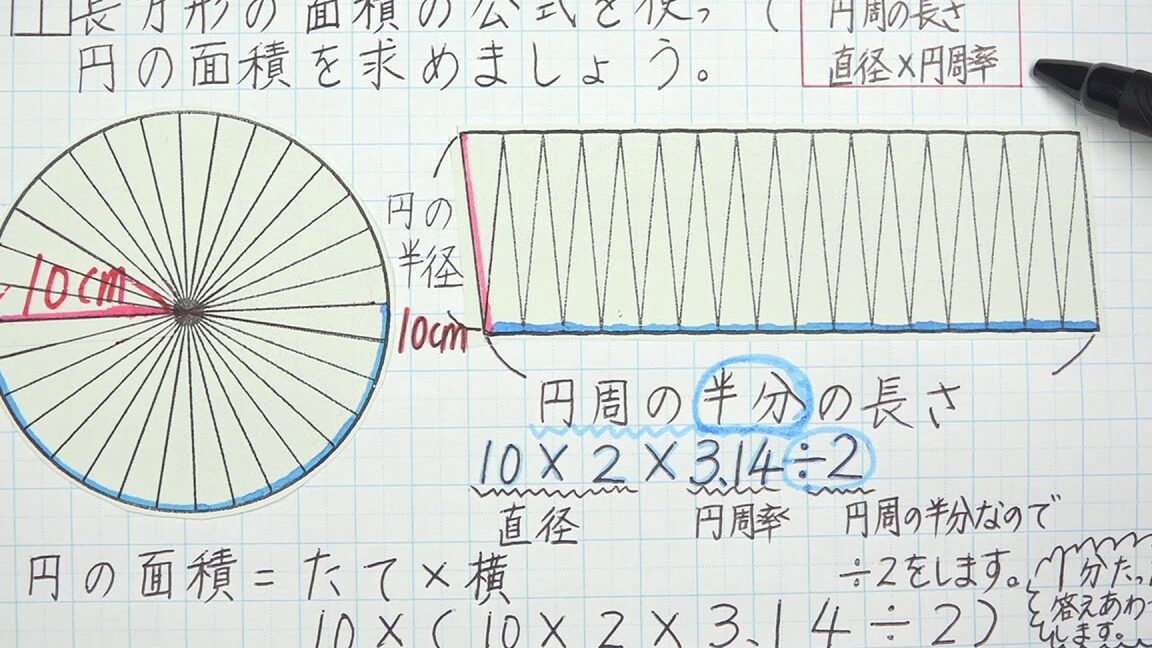 長方形の面積の公式を使っ
円の面積を求めましょう。
円周の長さ
直径×円周率
10cm
円の
半径
10cm
円周の半分の長さ
10×2×3.14÷2
直径 円周率 円周の半分なので
÷2をします。
円の面積=たて×横
10×(10×2×3.14÷2)
1分たっ
答えあわ
します。